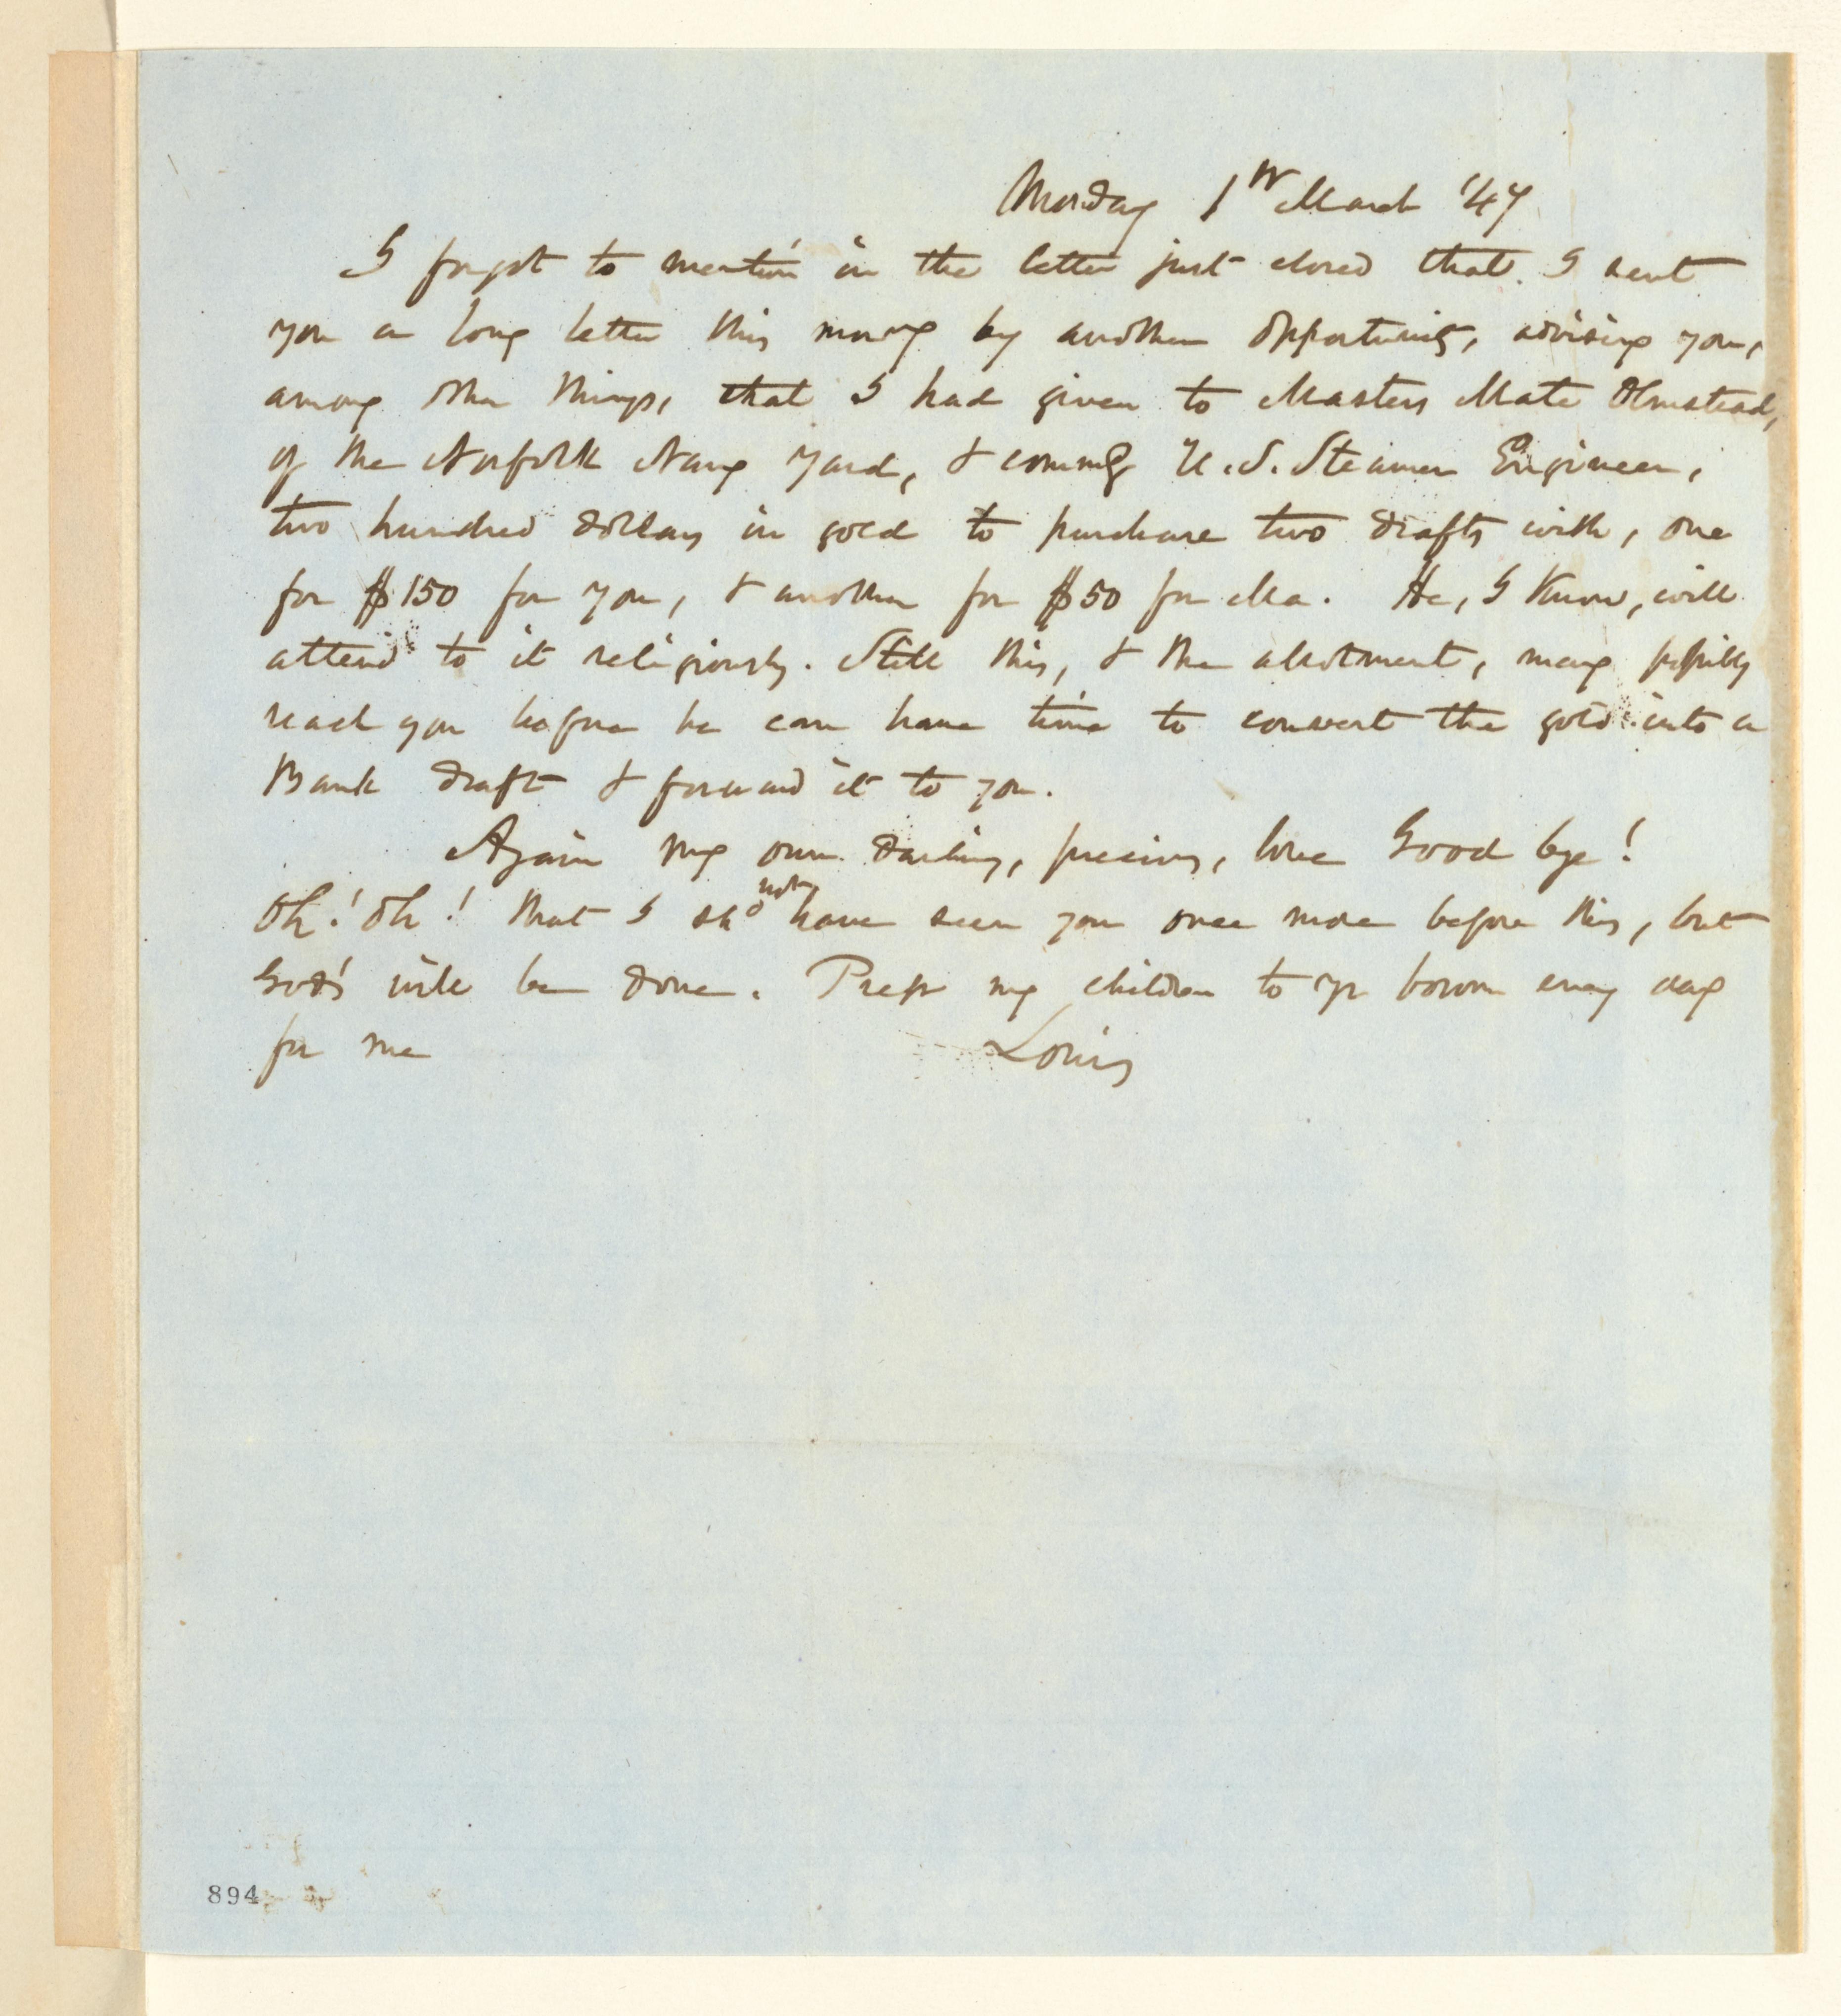 Monday 1st March '47
I forgot to mention in the letter just closed that I sent
you a long letter this morng by another opportunity, advising you,
among other things, that I had given to Masters Mate Olmstead,
of the Norfolk Navy Yard, & commg U.S. Steamer Engineer,
two hundred dollars in gold to purchase two drafts with, one
for $150 for you, & another for $50 for Ma. He, I know, will
attend to it religiously. Still this, & the allotment, may possibly
reach you before he can have time to convert the gold into a
Bank draft & forward it to you.
Again my own darling, precious, love Good bye!
Oh! Oh! that I shd not have seen you once more before this, but
God's will be done. Press my children to yr bosom every day
for me Louis
894